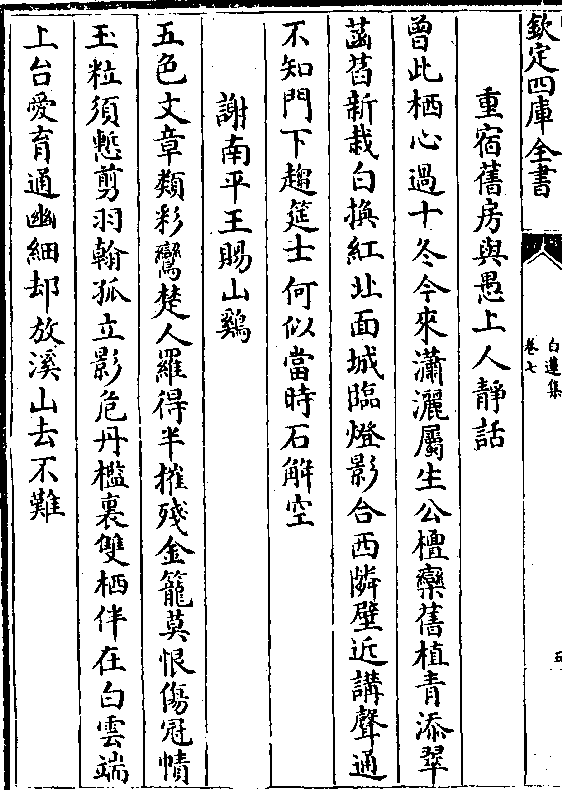 欽定四庫全書
白蓮集
卷七
五
重宿舊房與愚上人靜話
曾此栖心過十冬今來瀟灑屬生公檀欒舊植青添翠
菡萏新栽白換紅北面城臨燈影合西隣壁近講聲通
不知門下趨筵士何似當時石解空
謝南平王賜山鷄
五色文章類彩鸞楚人羅得半摧殘金籠莫恨傷冠幘
玉粒須慙剪羽翰孤立影危丹檻裏雙栖伴在白雲端
上台愛育通幽細却放溪山去不難